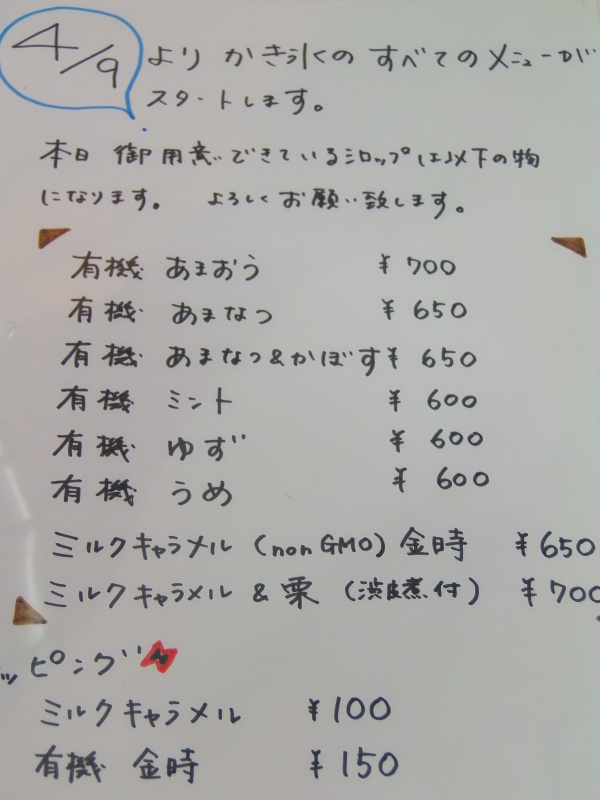 4/9 より かき氷の すべての メニューが
スタートします。
本日 御用意できているシロップは以下の物
になります。 よろしくお願い致します。
有機 あまおう ¥700
有機 あまなつ ¥650
有機 あまなつ&かぼす ¥650
有機 ミント ¥600
有機 ゆず ¥600
有機 うめ ¥600
ミルクキャラメル (non GMO) 金時 ¥650
ミルクキャラメル & 栗 (渋皮煮付) ¥700
ッピング
ミルクキャラメル ¥100
有機 金時 ¥150